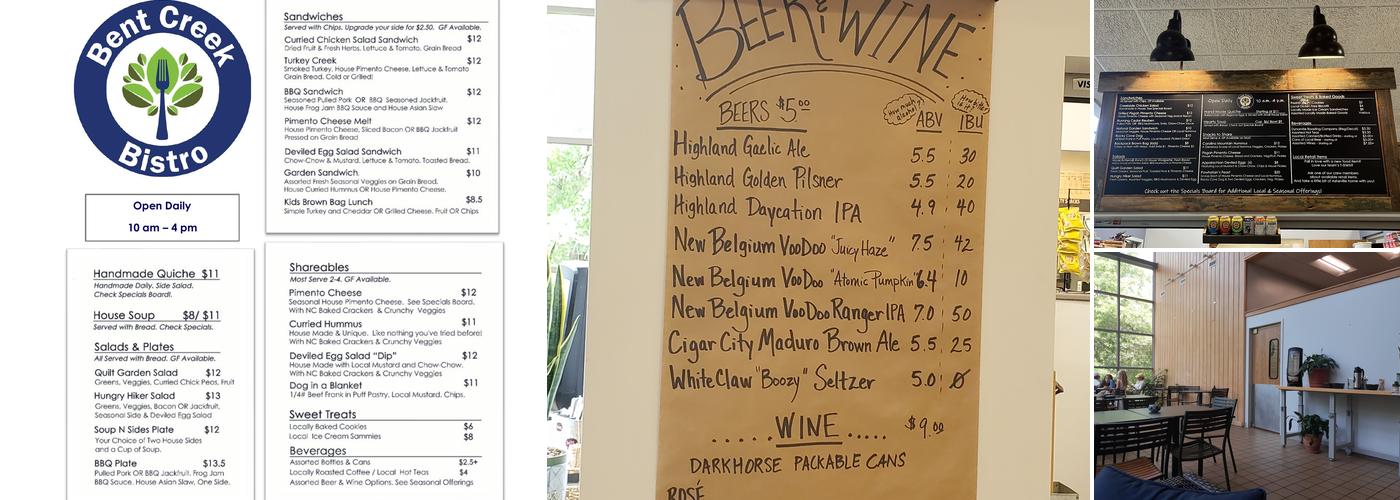 Bent Creek
Bistro
Open Daily
10 am – 4 pm
Handmade Quiche $11
Handmade Daily. Side Salad.
Check Specials Board!.
House Soup $8/ $11
Served with Bread. Check Specials.
Salads & Plates
All Served with Bread. GF Available.
Quilt Garden Salad $12
Greens, Veggies, Curried Chick Peas, Fruit
Hungry Hiker Salad $13
Greens, Veggies, Bacon OR Jackfruit,
Seasonal Side & Deviled Egg Salad
Soup N Sides Plate $12
Your Choice of Two House Sides
and a Cup of Soup.
BBQ Plate $13.5
Pulled Pork OR BBQ Jackfruit. Frog Jam
BBQ Sauce. House Asian Slaw, One Side.
Sandwiches
Served with Chips. Upgrade your side for $2.50. GF Available.
Curried Chicken Salad Sandwich $12
Dried Fruit & Fresh Herbs, Lettuce & Tomato, Grain Bread
Turkey Creek $12
Smoked Turkey, House Pimento Cheese, Lettuce & Tomato
Grain Bread. Cold or Grilled!
BBQ Sandwich $12
Seasoned Pulled Pork OR BBQ Seasoned Jackfruit.
House Frog Jam BBQ Sauce and House Asian Slaw
Pimento Cheese Melt $12
House Pimento Cheese, Sliced Bacon OR BBQ Jackfruit
Pressed on Grain Bread
Deviled Egg Salad Sandwich $11
Chow-Chow & Mustard. Lettuce & Tomato. Toasted Bread.
Garden Sandwich $10
Assorted Fresh Seasonal Veggies on Grain Bread.
House Curried Hummus OR House Pimento Cheese.
Kids Brown Bag Lunch $8.5
Simple Turkey and Cheddar OR Grilled Cheese. Fruit OR Chips
Shareables
Most Serve 2-4. GF Available.
Pimento Cheese $12
Seasonal House Pimento Cheese. See Specials Board.
With NC Baked Crackers & Crunchy Veggies
Curried Hummus $11
House Made & Unique. Like nothing you've tried before!
With NC Baked Crackers & Crunchy Veggies
Deviled Egg Salad "Dip" $12
House Made with Local Mustard and Chow-Chow.
With NC Baked Crackers & Crunchy Veggies
Dog in a Blanket $11
1/4# Beef Frank in Puff Pastry, Local Mustard. Chips.
Sweet Treats
Locally Baked Cookies $6
Local Ice Cream Sammies $8
Beverages
Assorted Bottles & Cans $2.5+
Locally Roasted Coffee / Local Hot Teas $4
Assorted Beer & Wine Options. See Seasonal Offerings
BEER & WINE
BEERS $5.00 ABV IBU
Highland Gaelic Ale 5.5 30
Highland Golden Pilsner 5.5 20
Highland Daycation IPA 4.9 40
New Belgium VooDoo "Juicy Haze" 7.5 42
New Belgium VooDoo "Atomic Pumpkin" 6.4 10
New Belgium VooDoo Ranger IPA 7.0 50
Cigar City Maduro Brown Ale 5.5 25
White Claw "Boozy" Seltzer 5.0 Ø
..... WINE ..... $9.00
DARKHORSE PACKABLE CANS
ROSÉ
VIS
Sandwiches
Salads
Open Daily 10 a.m. 4 p.m.
Snacks to Share
Sweet Treats & Baked Goods
Beverages
Local Retail Items
Check out the Specials Board for Additional Local & Seasonal Offerings!